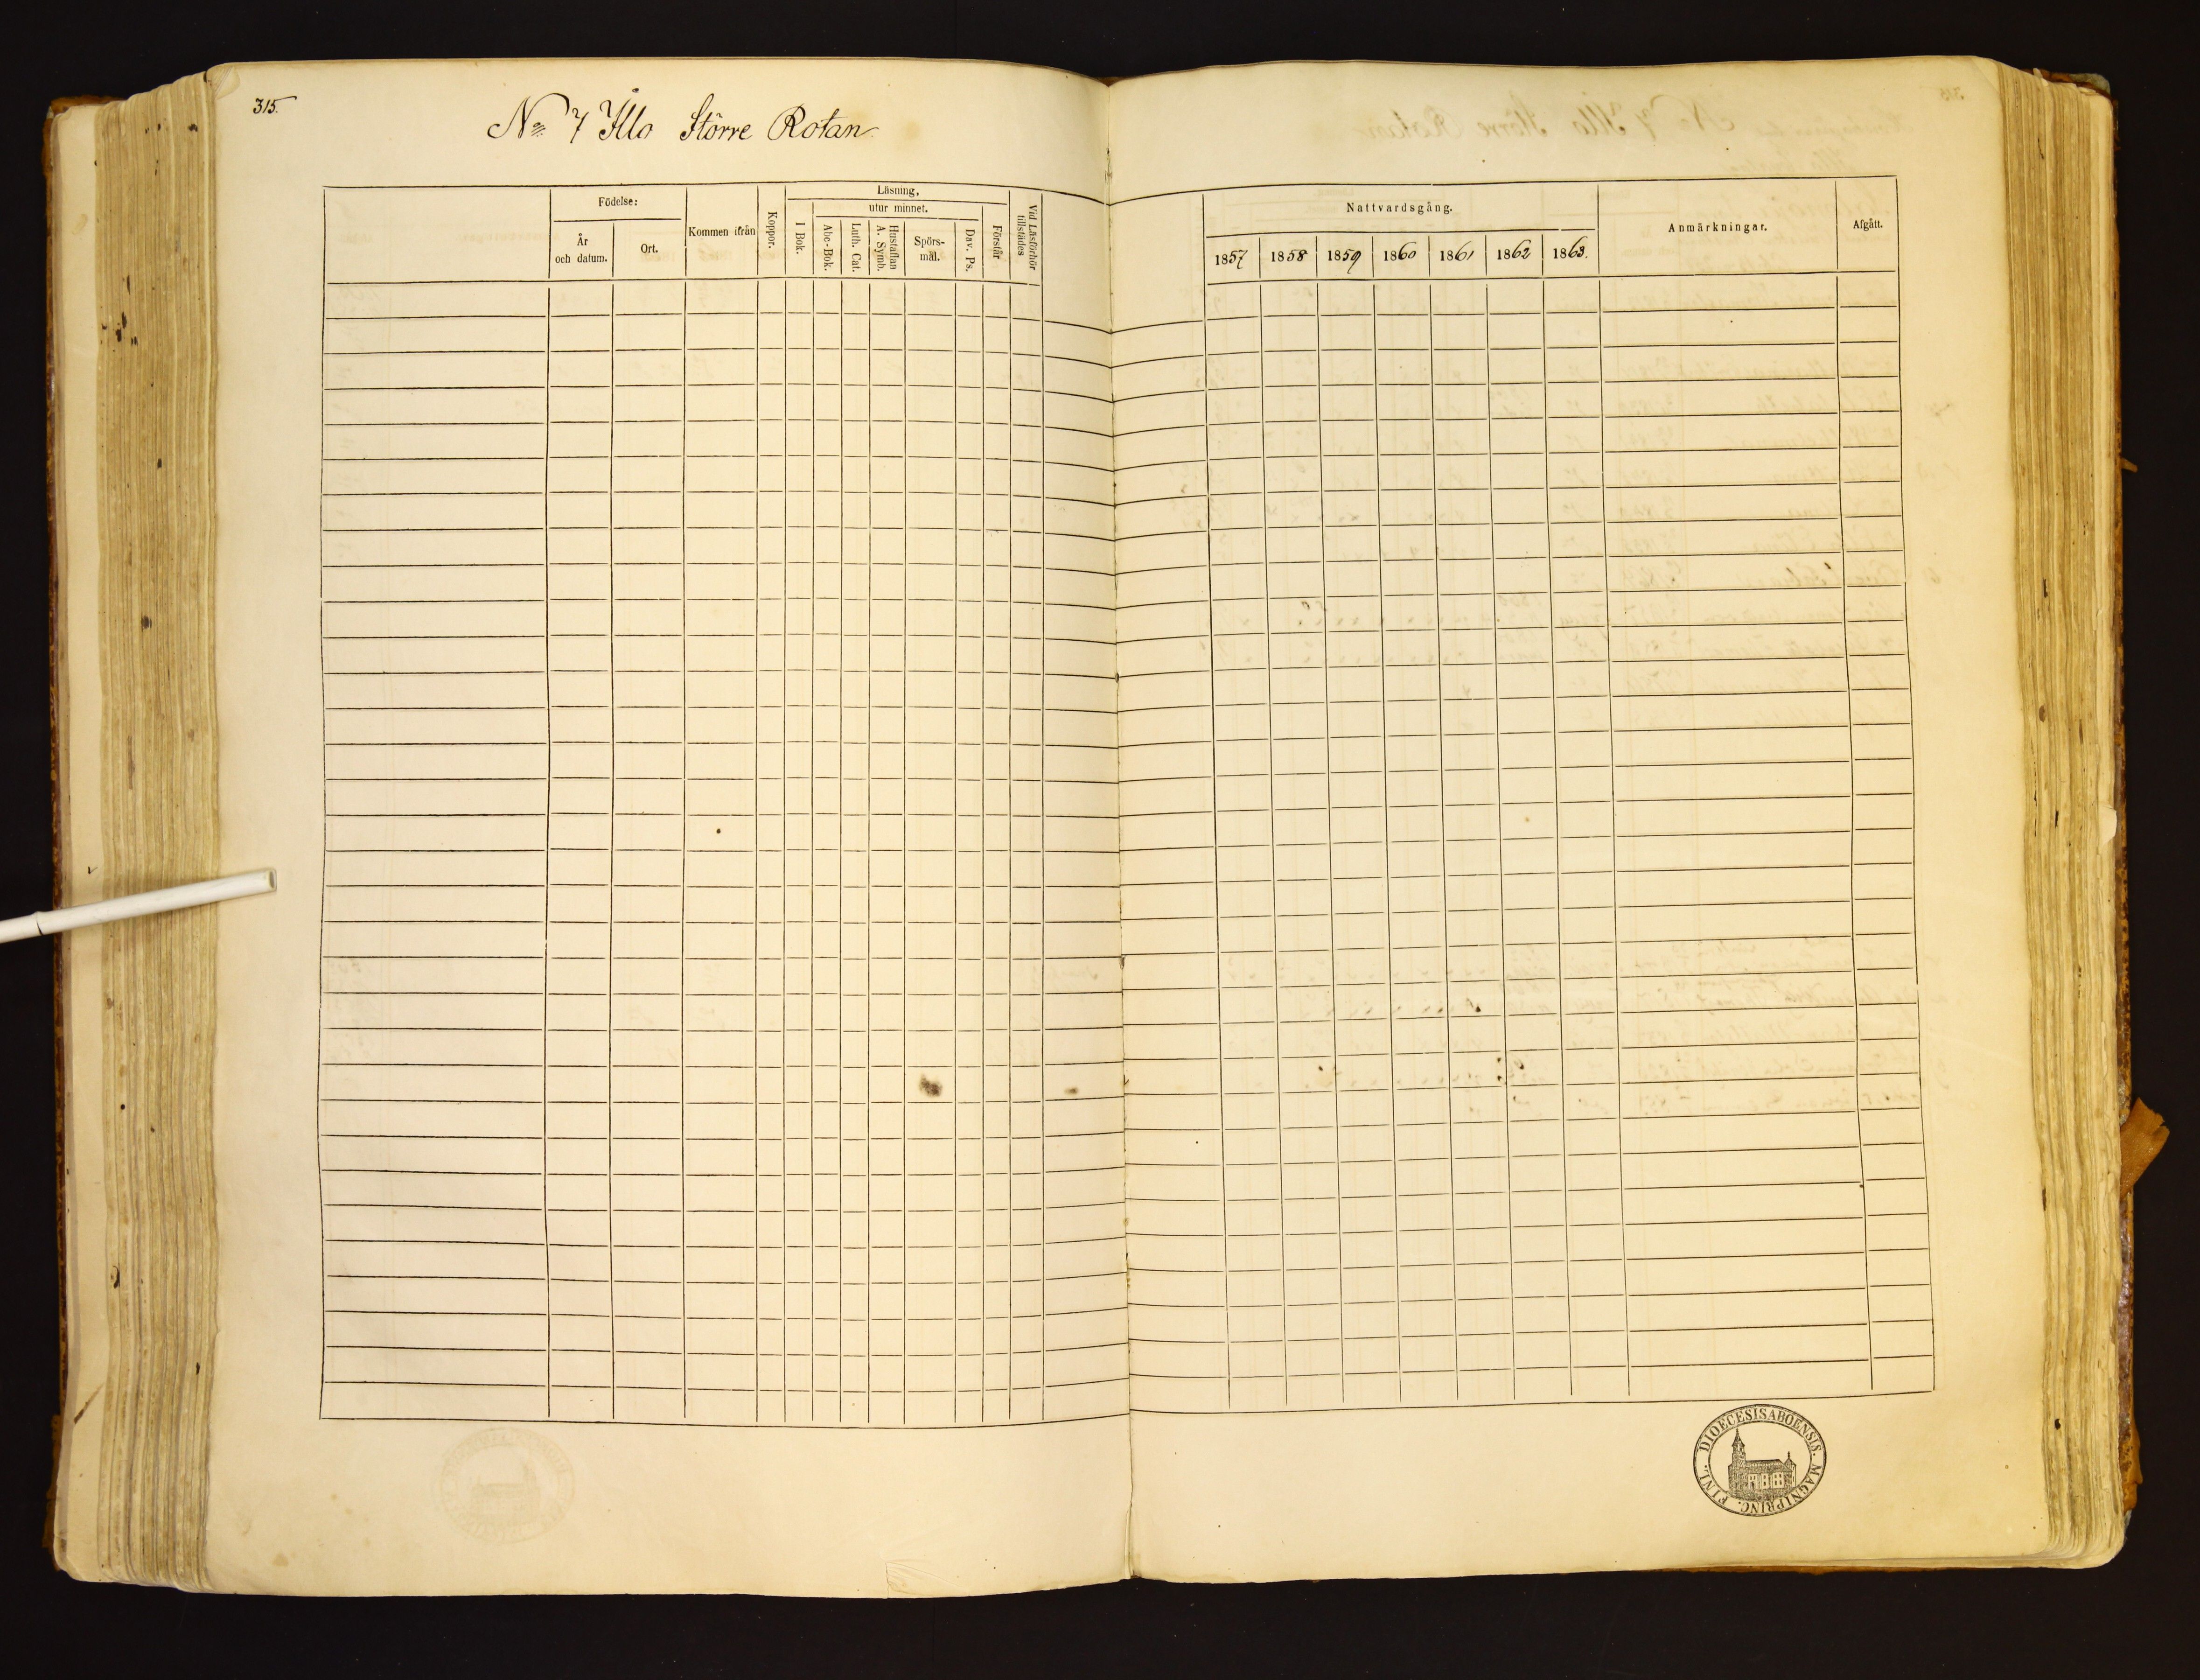 315.
No 7 Illo Större Rotan
Födelse:
År
och datum.
Ort.
Kommen ifrån
Koppor.
Läsning,
I Bok.
utur minnet.
Abc-Bok.
Luth. Cat.
Hustaflan
A. Symb.
Spörs-
mål.
Dav. Ps.
Förstår
Vid Läsförhör
tillstädes
Nattvardsgång.
1857 1858 1859 1860 1861 1862 1863.
Anmärkningar.
Afgått.
DIOECESIS ABOENSIS. MAGNI PRINC. FINL.